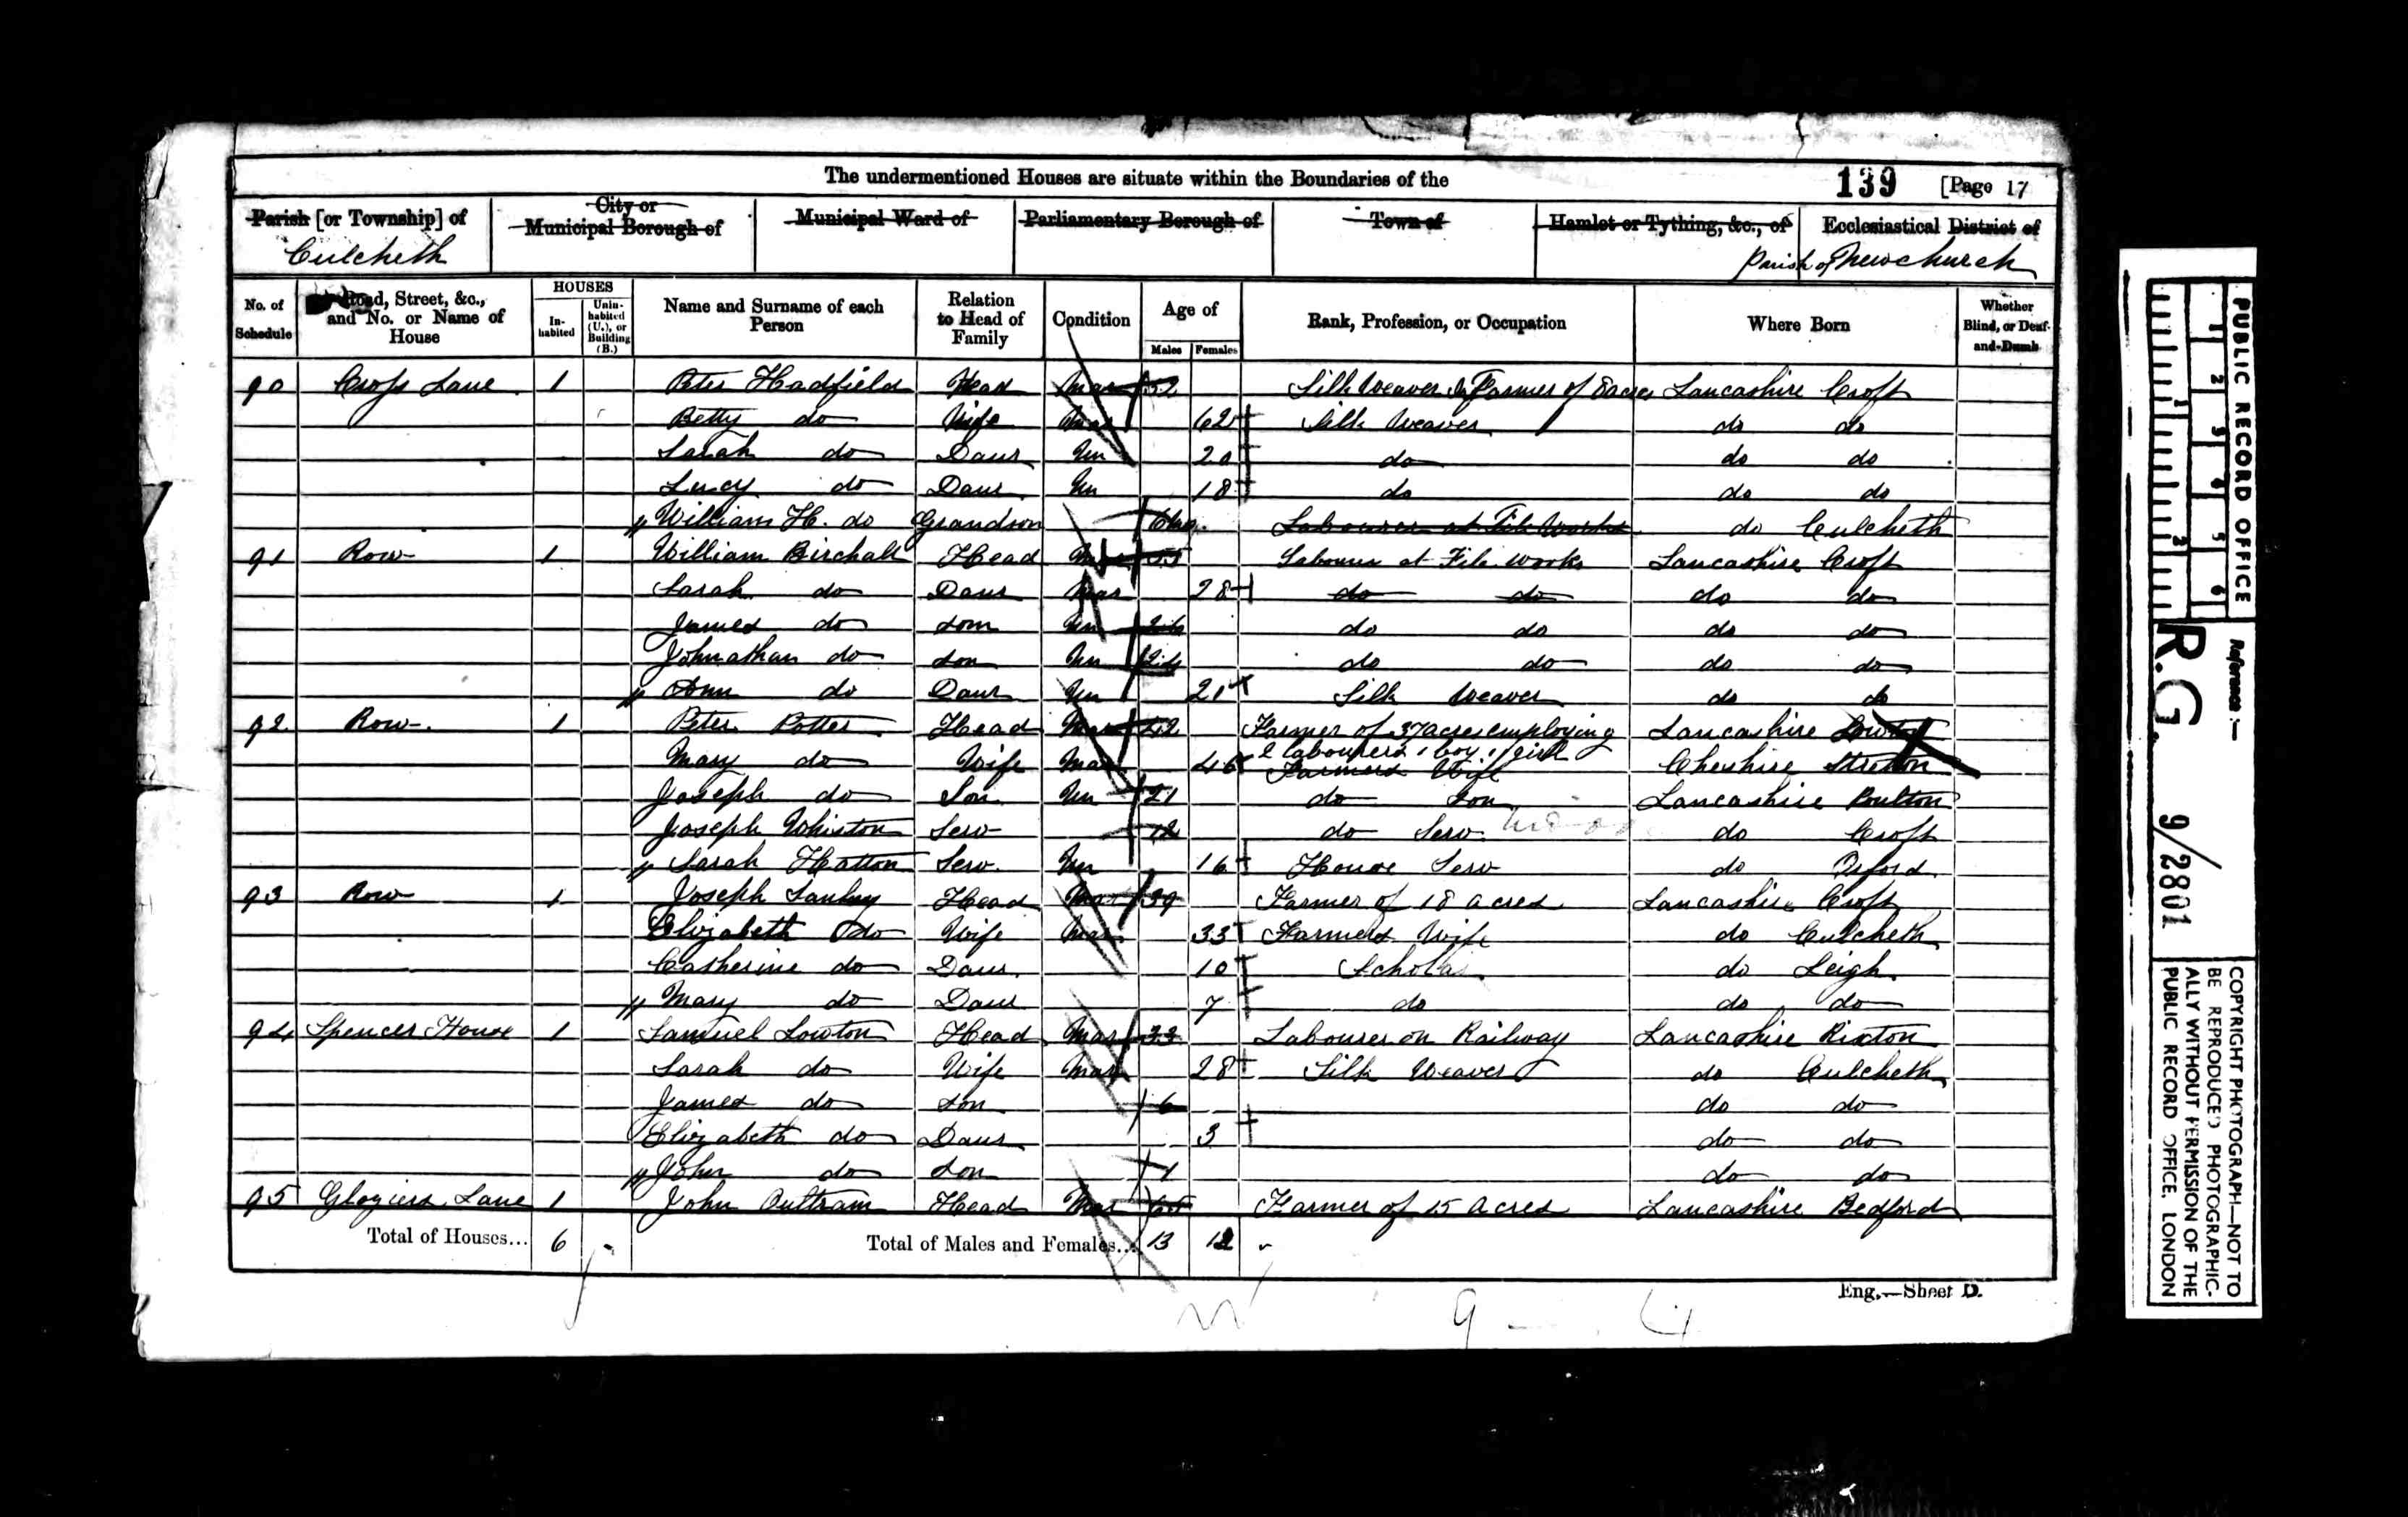 The undermentioned Houses are situate within the Boundaries of the 139 [Page 17
Parish [or Township] of City or Municipal Borough of Municipal Ward of Parliamentary Borough of Town of Hamlet or Tything, &c., of Ecclesiastical District of
Culcheth Parish of Newchurch
No. of Schedule Road, Street, &c., and No. or Name of House HOUSES In-habited Unin-habited (U.), or Building (B.) Name and Surname of each Person Relation to Head of Family Condition Age of Males Females Rank, Profession, or Occupation Where Born Whether Blind, or Deaf-and-Dumb
90 Cross Lane 1 Peter Hadfield Head Mar Silk Weaver & Farmer of 8 acres Lancashire Croft
Betty do Wife Mar 62 Silk Weaver do do
Sarah do Daur Un 20 do do do
Lucy do Daur Un 18 do do do
William H. do Grandson 6mo Labourer at File Works do Culcheth
91 Row 1 William Birchall Head Labourer at File works Lancashire Croft
Sarah do Daur Mar 28 do do do do
James do Son Un 26 do do do do
Johnathan do Son Un 24 do do do do
Ann do Daur Un 21 Silk Weaver do do
92 Row 1 Peter Potter Head Mar 42 Farmer of 37 acres employing Lancashire Lowton
2 labourers 1 boy 1 girl
Mary do Wife Mar 46 Farmers Wife Cheshire Stretton
Joseph do Son Un 21 do son Lancashire Poulton
Joseph Whiston Serv 12 do Serv do Croft
Sarah Hatton Serv Un 16 House Serv do Orford
93 Row 1 Joseph Head Mar 39 Farmer of 18 acres Lancashire Croft
Elizabeth do Wife Mar 33 Farmers Wife do Culcheth
Catherine do Daur 10 Scholar do Leigh
Mary do Daur 7 do do do
94 Spencer House 1 Samuel Lowton Head Mar 33 Labourer on Railway Lancashire Rixton
Sarah do Wife Mar 28 Silk Weaver do Culcheth
James do Son 6 do do
Elizabeth do Daur 3 do do
John do Son 1 do do
95 Glaziers Lane 1 John Outtram Head Mar Farmer of 15 acres Lancashire Bedford
Total of Houses... 6 Total of Males and Females... 13 12
Eng.—Sheet D.
PUBLIC RECORD OFFICE
1 2 3 4 5 6
Reference :—
R.G. 9/2801
COPYRIGHT PHOTOGRAPH—NOT TO
BE REPRODUCED PHOTOGRAPHIC-
ALLY WITHOUT PERMISSION OF THE
PUBLIC RECORD OFFICE, LONDON